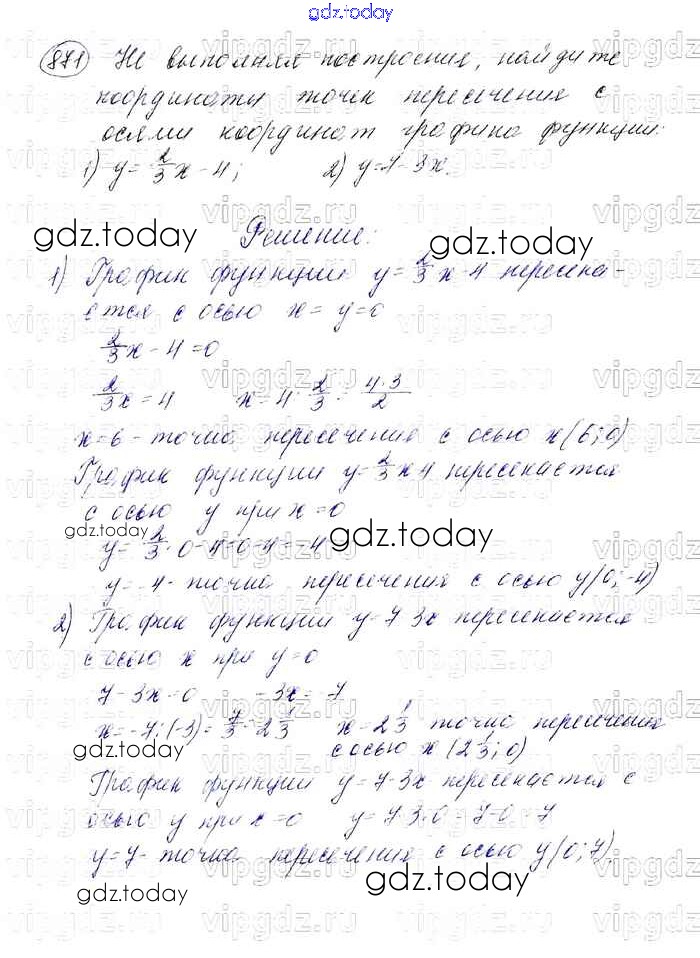 gdz.today
871 Не выполняя построения, найдите
координаты точек пересечения с
осями координат графика функции:
1) y = 2/3 x - 4; 2) y = 7 - 3x.
gdz.today Решение: gdz.today
1) График функции y = 2/3 x - 4 пересека-
ется с осью x = y = 0
2/3 x - 4 = 0
2/3 x = 4 x = 4 : 2/3 = 4·3/2
x = 6 - точка пересечения с осью x (6; 0)
График функции y = 2/3 x - 4 пересекается
с осью y при x = 0
gdz.today gdz.today
y = 2/3 · 0 - 4 = 0 - 4 = -4
y = -4 - точка пересечения с осью y (0; -4)
2) График функции y = 7 - 3x пересекается
с осью x при y = 0
7 - 3x = 0 -3x = -7
x = -7 : (-3) = 7/3 = 2 1/3 x = 2 1/3 точка пересечения
с осью x (2 1/3; 0)
gdz.today gdz.today
График функции y = 7 - 3x пересекается с
осью y при x = 0 y = 7 - 3·0 = 7 - 0 = 7
y = 7 - точка пересечения с осью y (0; 7).
gdz.today gdz.today
vipgdz.ru